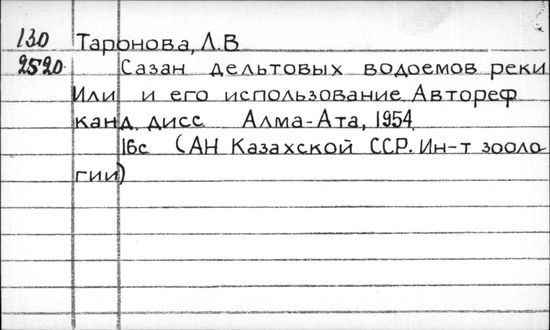 130 Таронова, Л.В
2520 Сазан дельтовых водоемов реки
Или и его использование. Автореф
канд. дисс Алма-Ата, 1954.
16с (АН Казахской ССР. Ин-т зооло
гии)